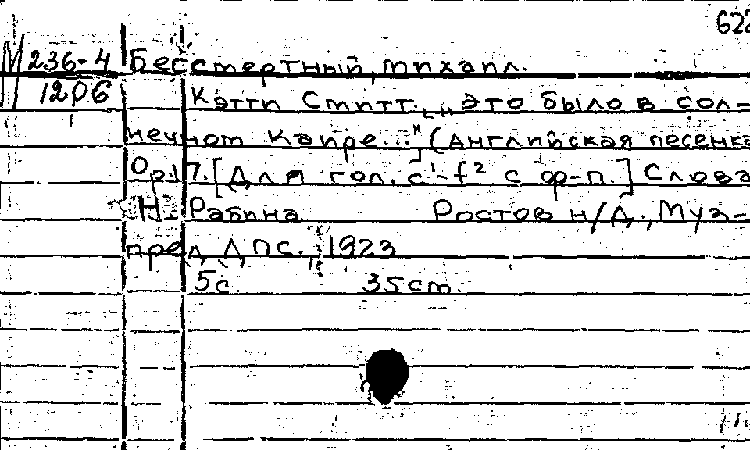 622
М 236-4 Бессмертный, Михаил.
1206 Кэтти Смитт. „Это было в сол-
нечном Каире..." (Английская песенка
Op.17. [Для гол. c¹-f² с ф-п.] Слова
Н. Рабина Ростов н/Д., Муз-
пред ДПС., 1923
5с 35см.